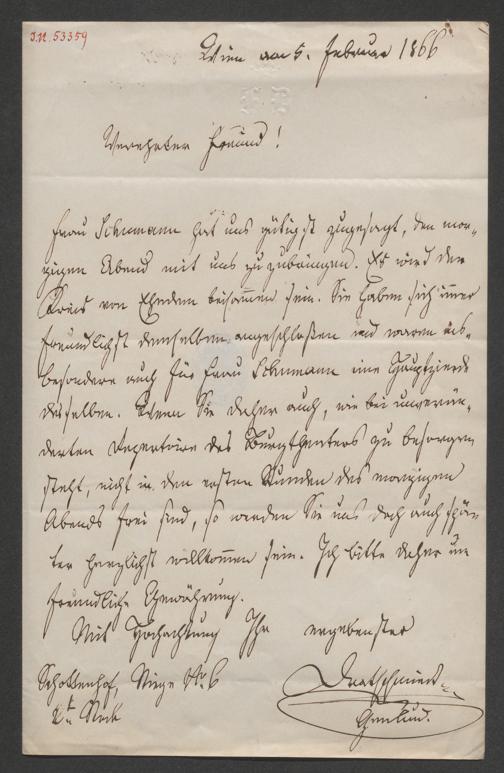 J.N. 53359
Wien am 5. Februar 1866
Verehrter Freund!
Frau Schumann hat uns gütigst zugesagt, den mor-
gigen Abend mit uns zuzubringen. Es wird der
Kreis von Ehedem beisammen sein. Sie haben sich immer
freundlichst demselben angeschloßen und waren ins-
besondere auch für Frau Schumann eine Hauptzierde
desselben. Wenn Sie daher auch, wie bei ungeän-
derten Repertoire des Burgtheaters zu besorgen
steht, nicht in den ersten Stunden des morgigen
Abends frei sind, so werden Sie uns doch auch spä-
ter herzlichst willkommen sein. Ich bitte daher um
freundliche Gewährung.
Mit Hochachtung Ihr ergebenster
Schottenhof, Stiege Nr. 6
2ter Stock